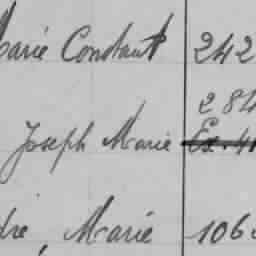 Marie Constant 242
284
Joseph Marie Ex. 41
dre, Marie 106